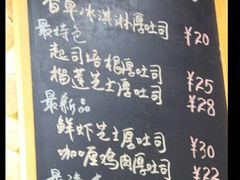 百早冰淇淋厚吐司 ¥20
最特色
起司培根厚吐司 ¥25
榴莲芝士厚吐司 ¥28
最新品
鲜虾芝士厚吐司 ¥30
咖喱鸡肉厚吐司 ¥22